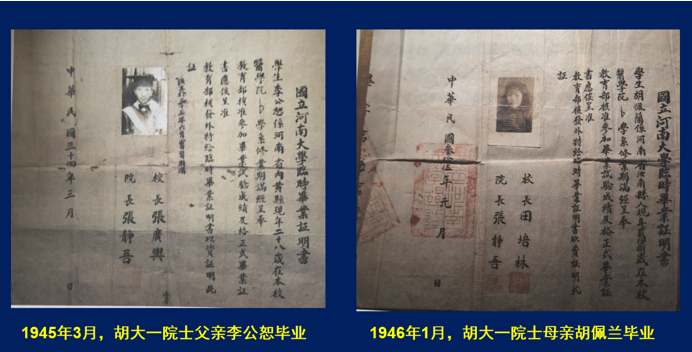 國立河南大學臨時畢業証明書
學生李公恕係河南省內黃縣現年二十八歲在本校
醫學院 學系修業期滿經呈奉
教育部核准參加畢業試驗成績及格正式畢業証
書應俟呈准
教育部核發外特給臨時畢業証明書以資証明此
証
校長張廣輿
院長張靜吾
中華民國三十四年三月 日
國立河南大學臨時畢業証明書
學生胡佩蘭係河南省汝南縣人現年 歲在本校
醫學院 學系修業期滿經呈奉
教育部核准參加畢業試驗成績及格正式畢業証
書應俟呈准
教育部核發外特給臨時畢業証明書以資証明此
証
校長田培林
院長張靜吾
中華民國叁拾伍年元月 日
1945年3月，胡大一院士父亲李公恕毕业
1946年1月，胡大一院士母亲胡佩兰毕业